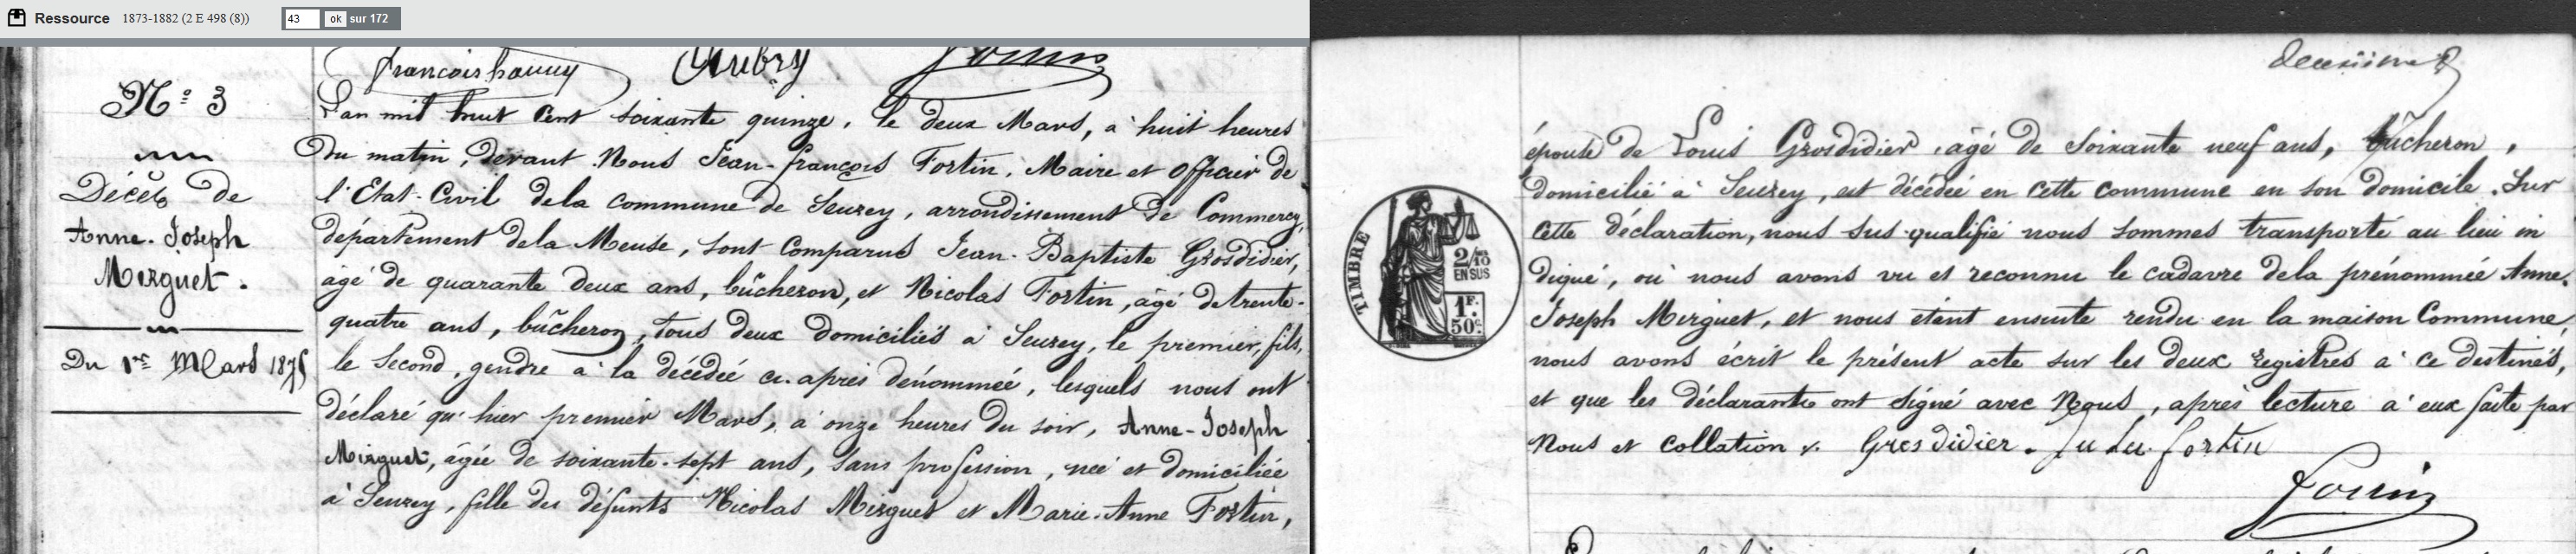 Ressource 1873-1882 (2 E 498 (8)) 43 ok sur 172
Aubry
N° 3
Décès de
Anne-Joseph
Mirguet.
Du 1er Mars 1875
L'an mil huit cent soixante quinze, le deux Mars, à huit heures
du matin, devant Nous Jean-françois Fortin, Maire et Officier de
l'Etat-Civil dela commune de Seuzey, arrondissement de Commercy,
département dela Meuse, sont comparus Jean-Baptiste Grosdidier,
âgé de quarante deux ans, bûcheron, et Nicolas Fortin, âgé de trente-
quatre ans, bûcheron, tous deux domiciliés à Seuzey, le premier, fils,
le second, gendre à la décédée ci-après dénommée, lesquels nous ont
déclaré qu'hier premier Mars, à onze heures du soir, Anne-Joseph
Mirguet, âgée de soixante-sept ans, sans profession, née et domiciliée
à Seuzey, fille des défunts Nicolas Mirguet et Marie-Anne Fortin,
épouse de Louis Grosdidier, âgé de soixante neuf ans, bûcheron,
domicilié à Seuzey, est décédée en cette commune en son domicile. Sur
cette déclaration, nous sus-qualifié nous sommes transporté au lieu in
diqué, où nous avons vu et reconnu le cadavre dela prénommée Anne-
Joseph Mirguet, et nous étant ensuite rendu en la maison Commune
nous avons écrit le présent acte sur les deux registres à ce destinés,
et que les déclarants ont signé avec Nous, après lecture à eux faite par
Nous et collation. Grosdidier. fortin
TIMBRE
2/10
EN SUS
1F.
50c.